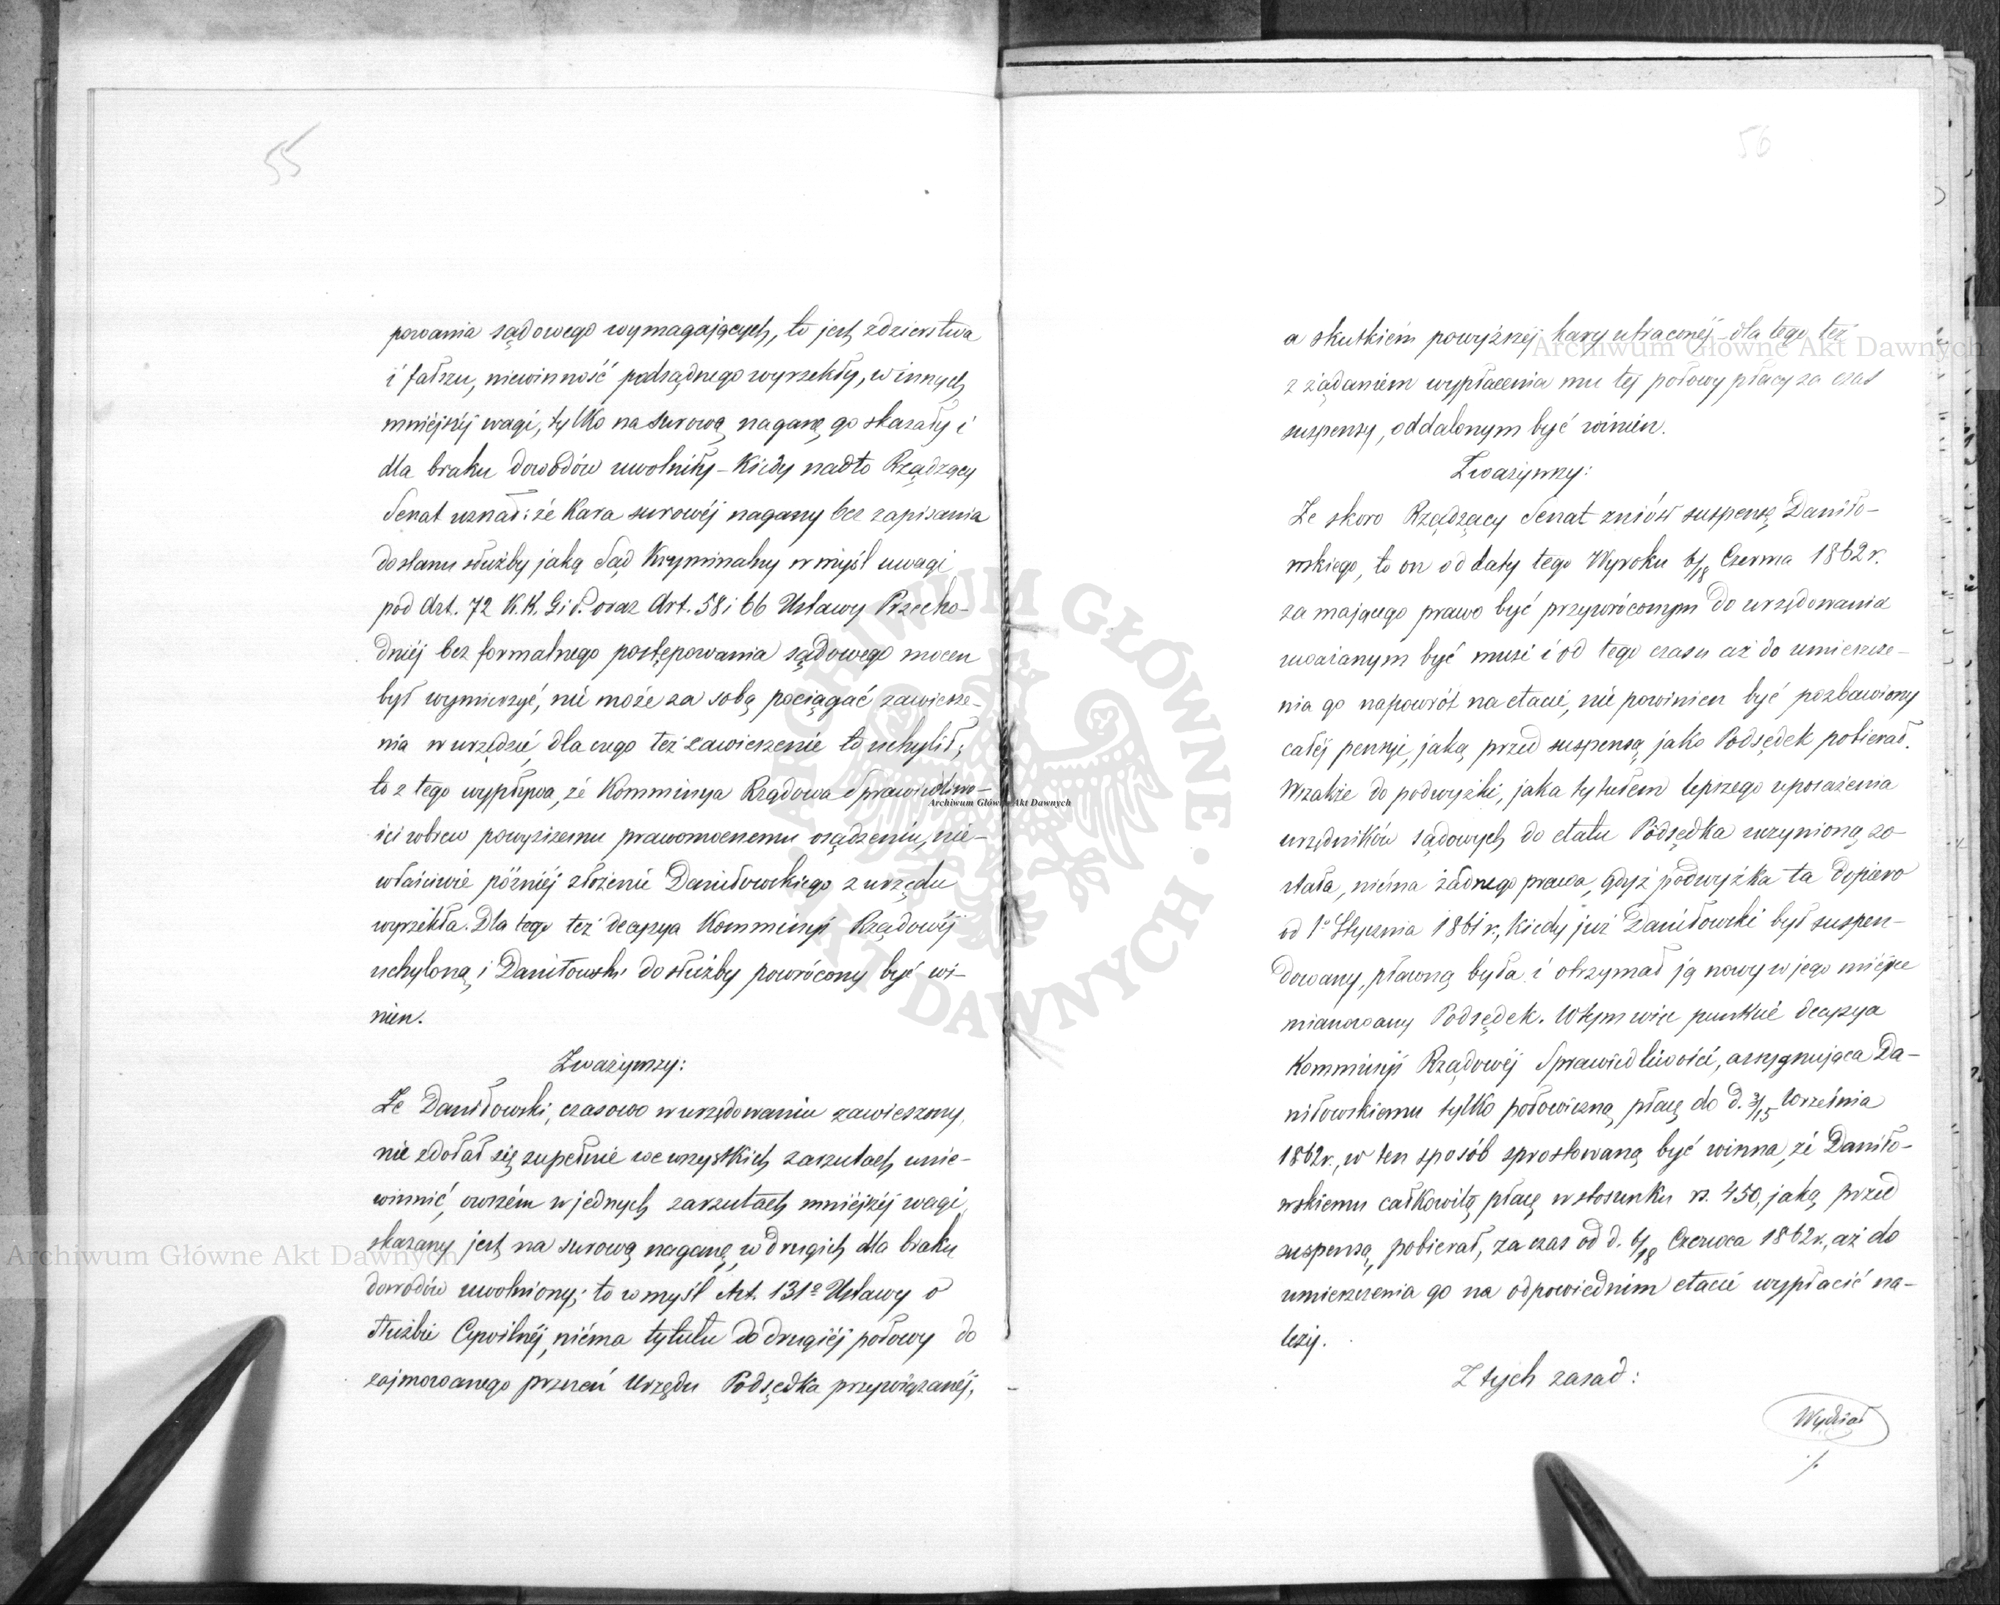 55
powania sądowego wymagających, to jest zdzierstwa
i fałszu, niewinność podsądnego wyrzekły, w innych
mniejszéj wagi, tylko na surową naganę go skazały i
dla braku dowodów uwolniły – Kiedy nadto Rządzący
Senat uznał: że Kara surowéj nagany bez zapisania
do stanu służby jaką Sąd Kryminalny w myśl uwagi
pod Art. 72 K.K. G i P. oraz Art. 58 i 66 Ustawy Przecho-
dniéj bez formalnego postępowania sądowego mocen
był wymierzyć, nie może za sobą pociągać zawiesze-
nia w urzędzie, dla czego też zawieszenie to uchylił;
to z tego wypływa, że Kommissya Rządowa Sprawiedliwo-
ści wbrew powyższemu prawomocnemu osądzeniu, nie-
właściwie późniéj złożenie Daniłowskiego z urzędu
wyrzekła. Dla tego też decyzya Kommissyi Rządowéj
uchyloną i Daniłowski do służby powrócony być wi-
nien.
Zważywszy:
Że Daniłowski, czasowo w urzędowaniu zawieszony,
nie zdołał się zupełnie we wszystkich zarzutach unie-
winnić, owszem w jednych zarzutach mniejszéj wagi
skazany jest na surową naganę, w drugich dla braku
dowodów uwolniony; to w myśl Art. 131º Ustawy o
Służbie Cywilnéj, niéma tytułu do drugiéj połowy do
zajmowanego przezeń Urzędu Podsędka przywiązanéj,
56
a skutkiem powyższéj kary utraconéj – dla tego też
z żądaniem wypłacenia mu téj połowy płacy za czas
suspensy, oddalonym być winien.
Zważywszy:
Że skoro Rządzący Senat zniósł suspensę Daniło-
wskiego, to on od daty tego Wyroku 6/18 Czerwca 1862 r.
za mającego prawo być przywróconym do urzędowania
uważanym być musi i od tego czasu aż do umieszcze-
nia go napowrót na etacie, nie powinien być pozbawiony
całéj pensyi, jaką przed suspensą jako Podsędek pobierał.
Wszakże do podwyżki, jaka tytułem lepszego uposażenia
urzędników sądowych do etatu Podsędka uczynioną zo-
stała, niéma żadnego prawa, gdyż podwyżka ta dopiero
od 1º Stycznia 1861 r., Kiedy już Daniłowski był suspen-
dowany, płaconą była i otrzymał ją nowy w jego miejsce
mianowany Podsędek. W tym więc punkcie decyzya
Kommissyi Rządowéj Sprawiedliwości, assygnująca Da-
niłowskiemu tylko połowiczną płacę do d. 3/15 Września
1862 r., w ten sposób sprostowaną być winna, że Daniło-
wskiemu całkowitą płacę w stosunku rs. 450, jaką przed
suspensą pobierał, za czas od d. 6/18 Czerwca 1862 r., aż do
umieszczenia go na odpowiednim etacie wypłacić na-
leży.
Z tych zasad:
Wydział
./.
Archiwum Główne Akt Dawnych
Archiwum Główne Akt Dawnych
Archiwum Główne Akt Dawnych
ARCHIWUM GŁÓWNE • AKT DAWNYCH •